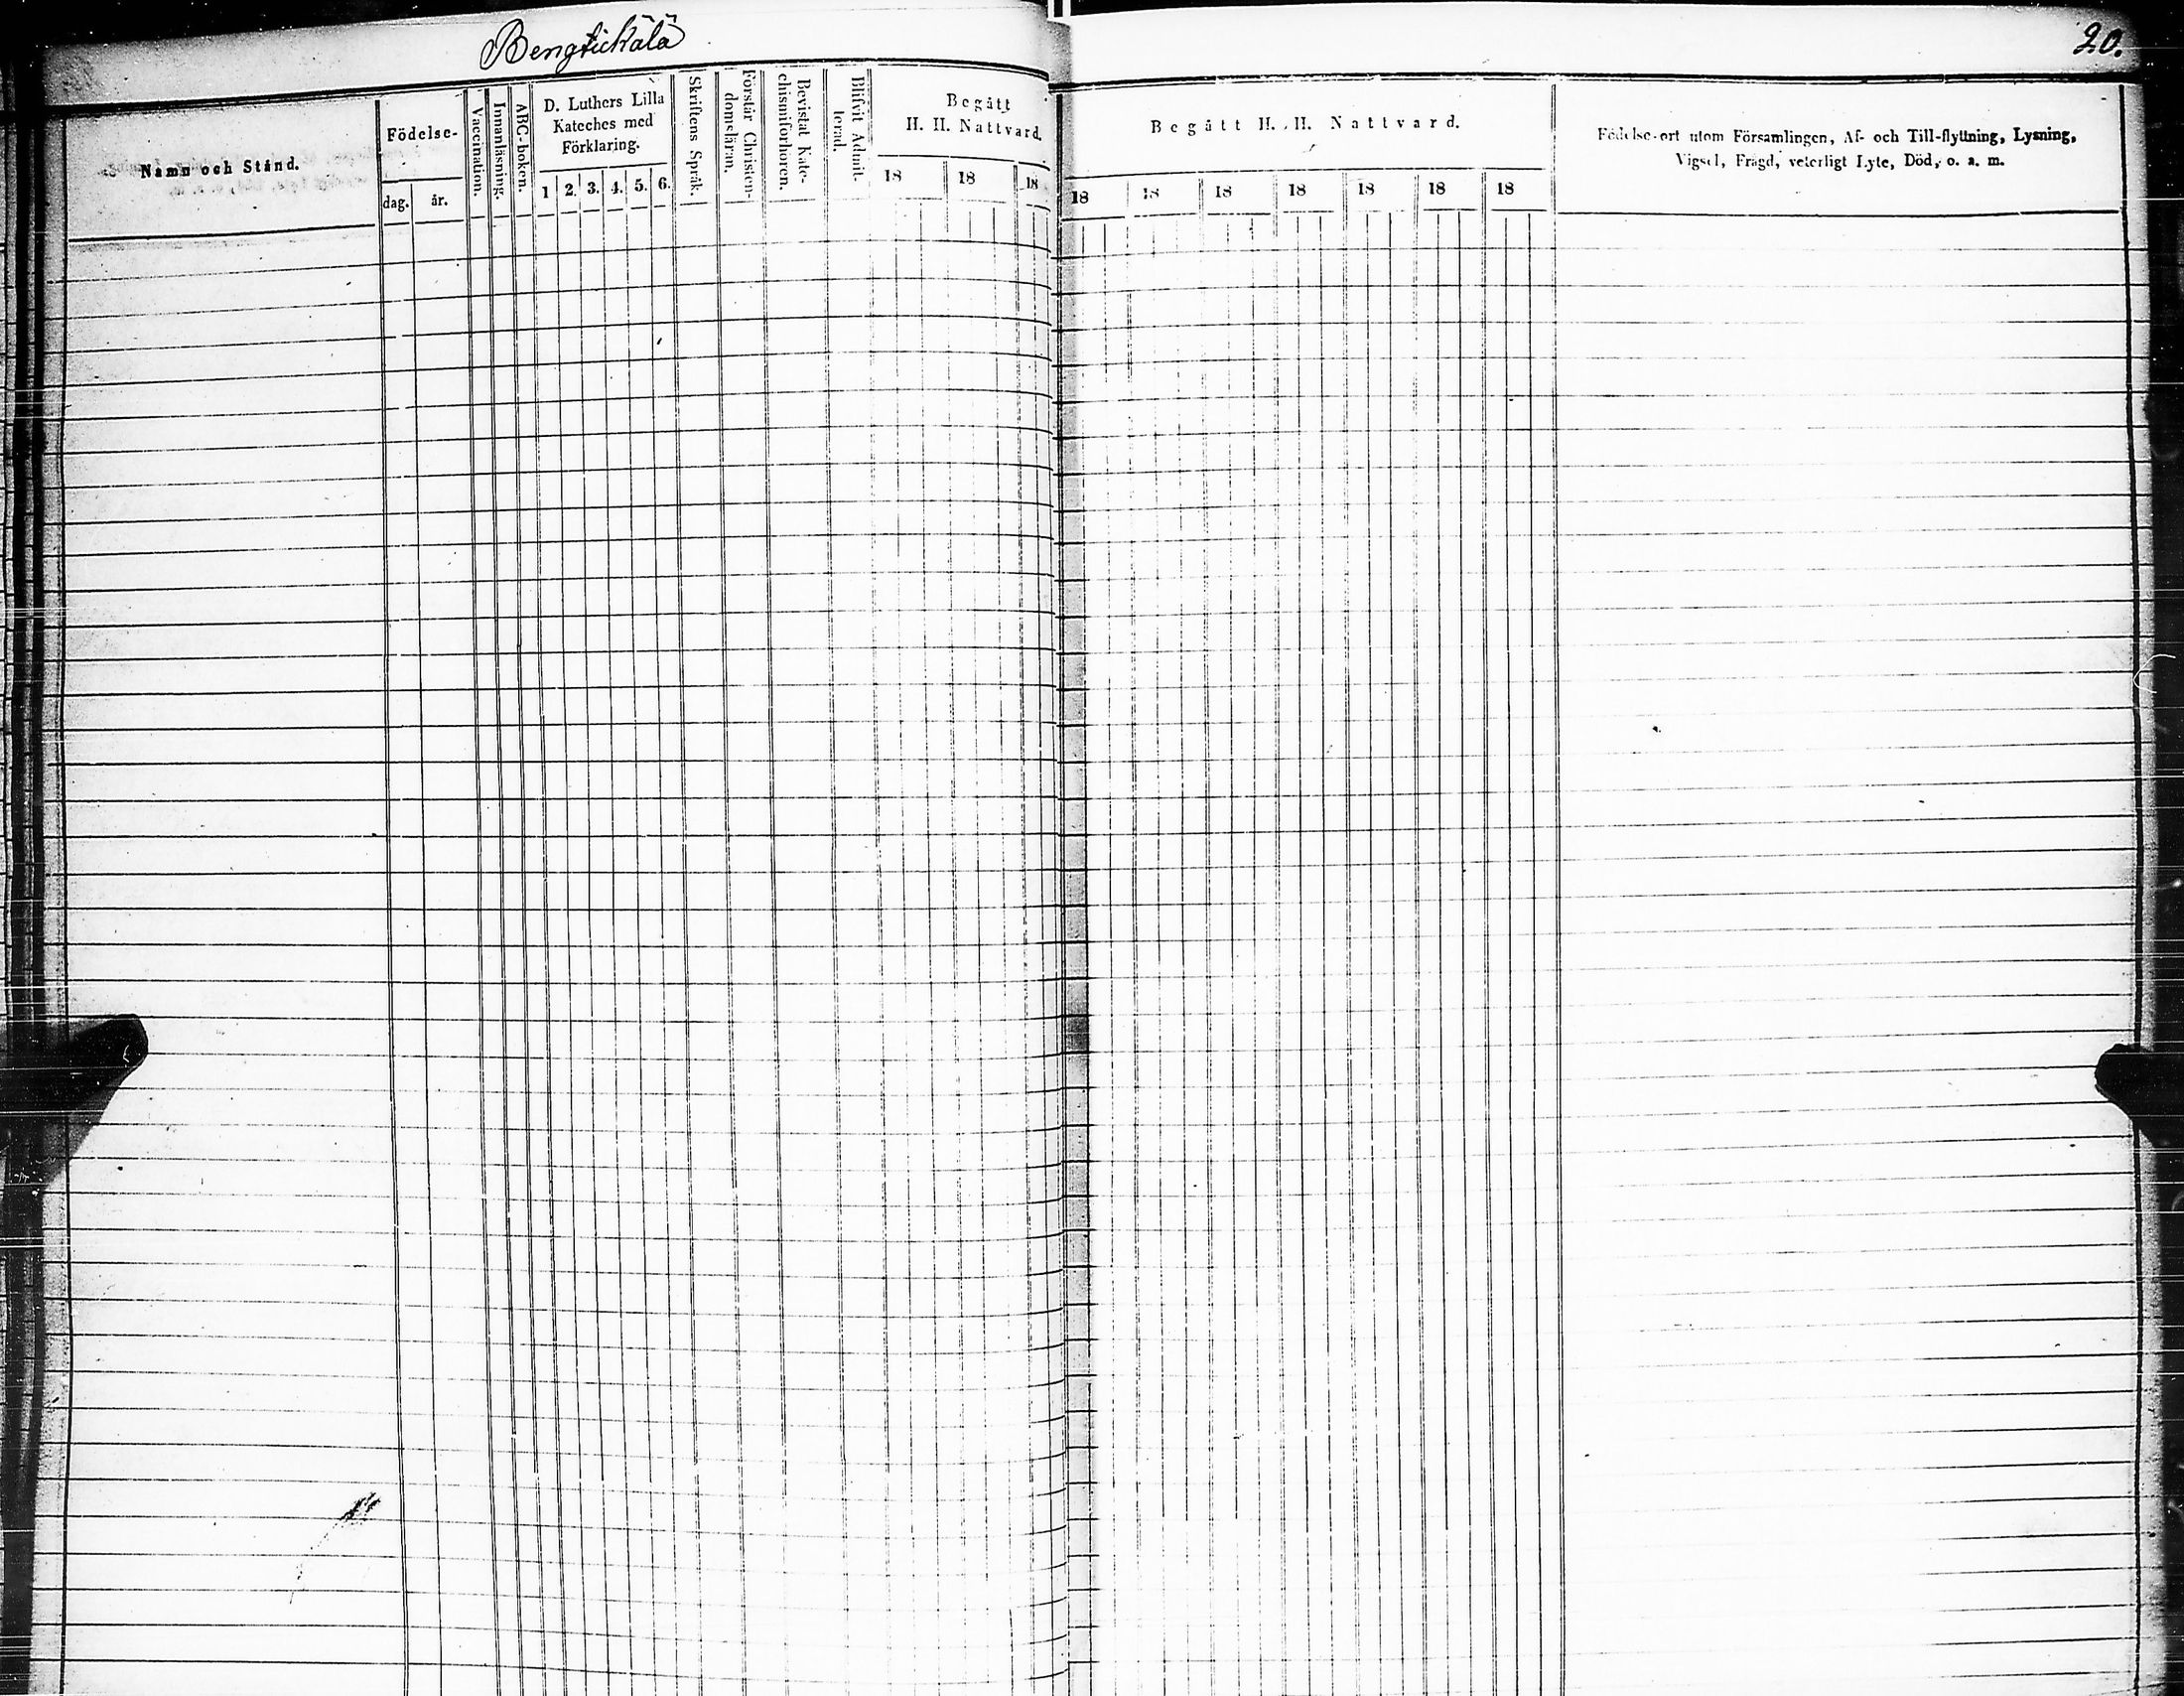 Bengtickälä
20.
Namn och Stånd.
Födelse-
dag.
år.
Vaccination.
Innanläsning.
ABC-boken.
D. Luthers Lilla
Kateches med
Förklaring.
1 2. 3. 4. 5. 6.
Skriftens Språk.
Förstår Christen-
domsläran.
Bevistat Kate-
chismiförhören.
Blifvit Admit-
terad.
Begått
H. H. Nattvard.
18 18 18
Begått H. H. Nattvard.
18 18 18 18 18 18 18
Födelse-ort utom Församlingen, Af- och Till-flyttning, Lysning,
Vigsel, Frägd, veterligt Lyte, Död, o. a. m.